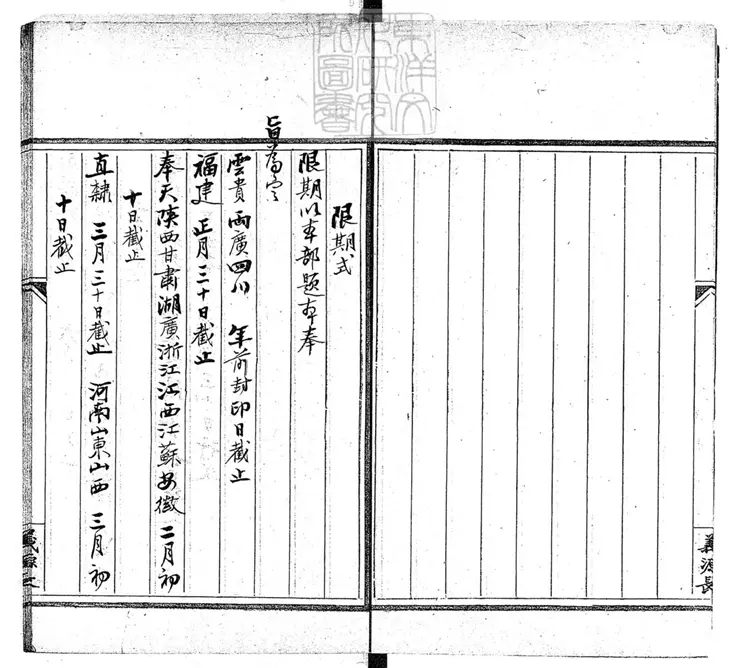 義源長
限期式
限期以本部題本奉
旨為定
雲貴兩廣四川　年前封印日截止
福建　正月三十日截止
奉天陝西甘肅湖廣浙江江西江蘇安徽　二月初
十日截止
直隸　三月三十日截止　河南山東山西　三月初
十日截止
東洋文
化研究
所圖書